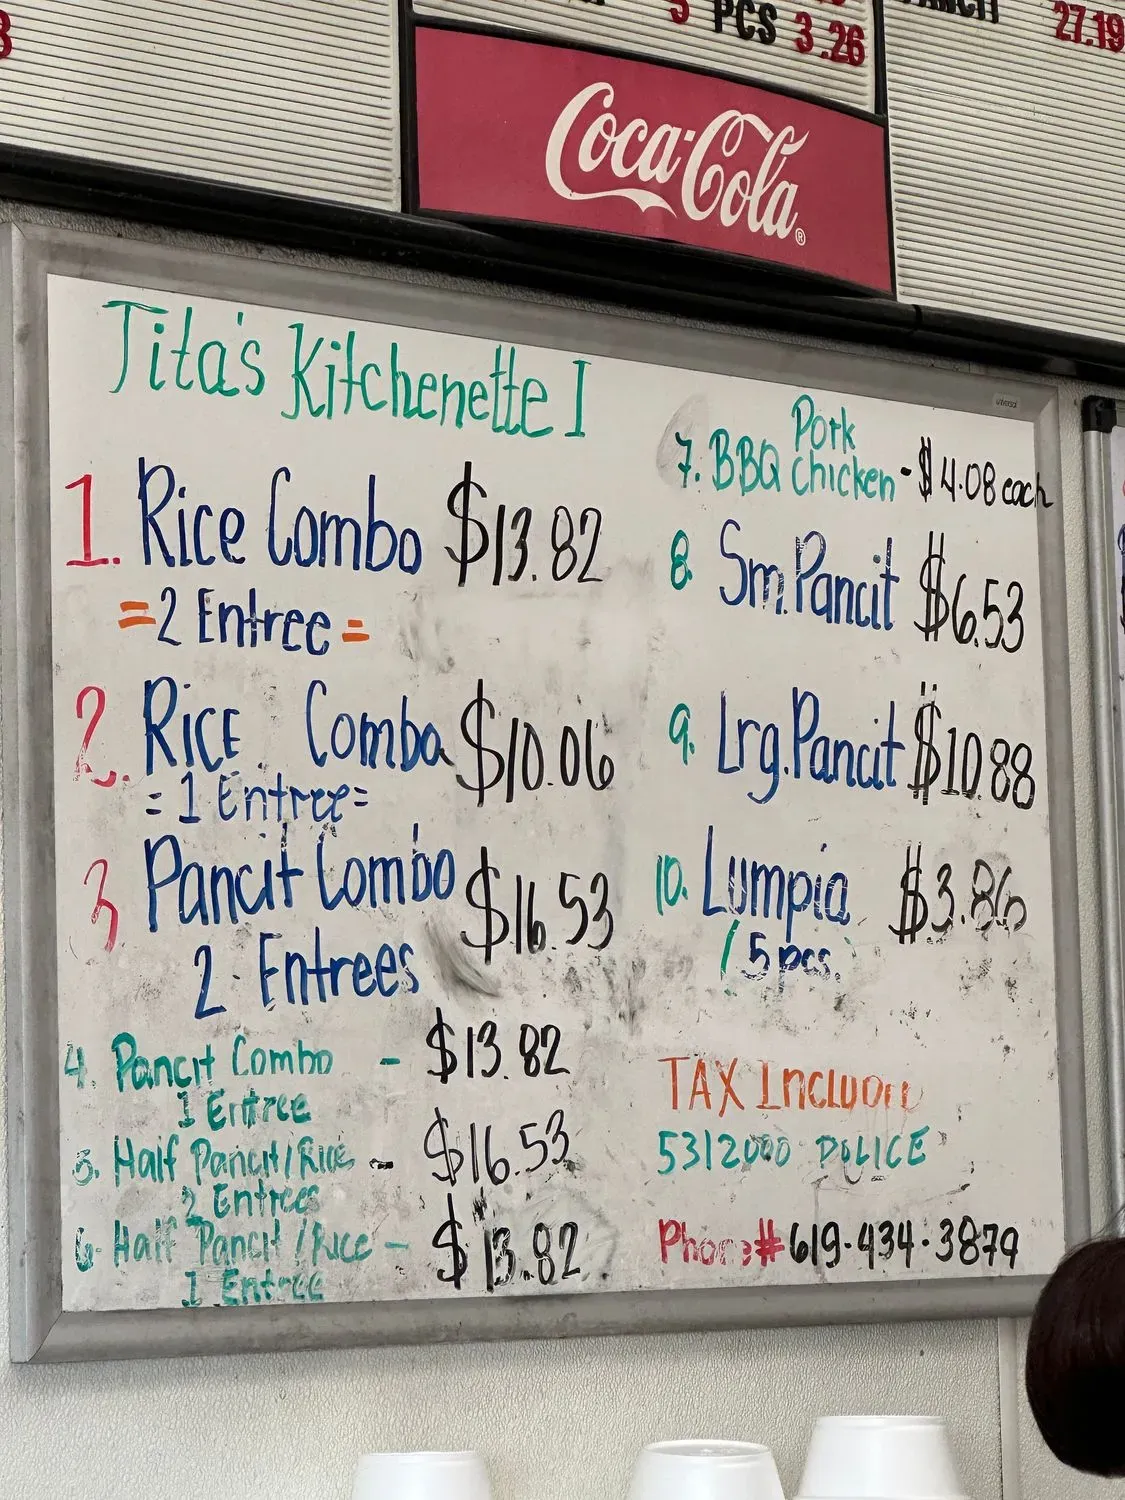 5 PCS 3.26
27.19
Coca-Cola®
universal
Tita's Kitchenette I
1. Rice Combo $13.82
=2 Entree=
2. RICE Combo $10.06
=1 Entree=
3 Pancit Combo $16.53
2 Entrees
4. Pancit Combo - $13.82
1 Entree
5. Half Pancit/Rice - $16.53
2 Entrees
6. Half Pancit/Rice - $13.82
1 Entree
Pork
7. BBQ Chicken - $4.08 each
8. Sm. Pancit $6.53
9. Lrg. Pancit $10.88
10. Lumpia $3.86
/5 pcs.
TAX
5312000 POLICE
Phone# 619-434-3879